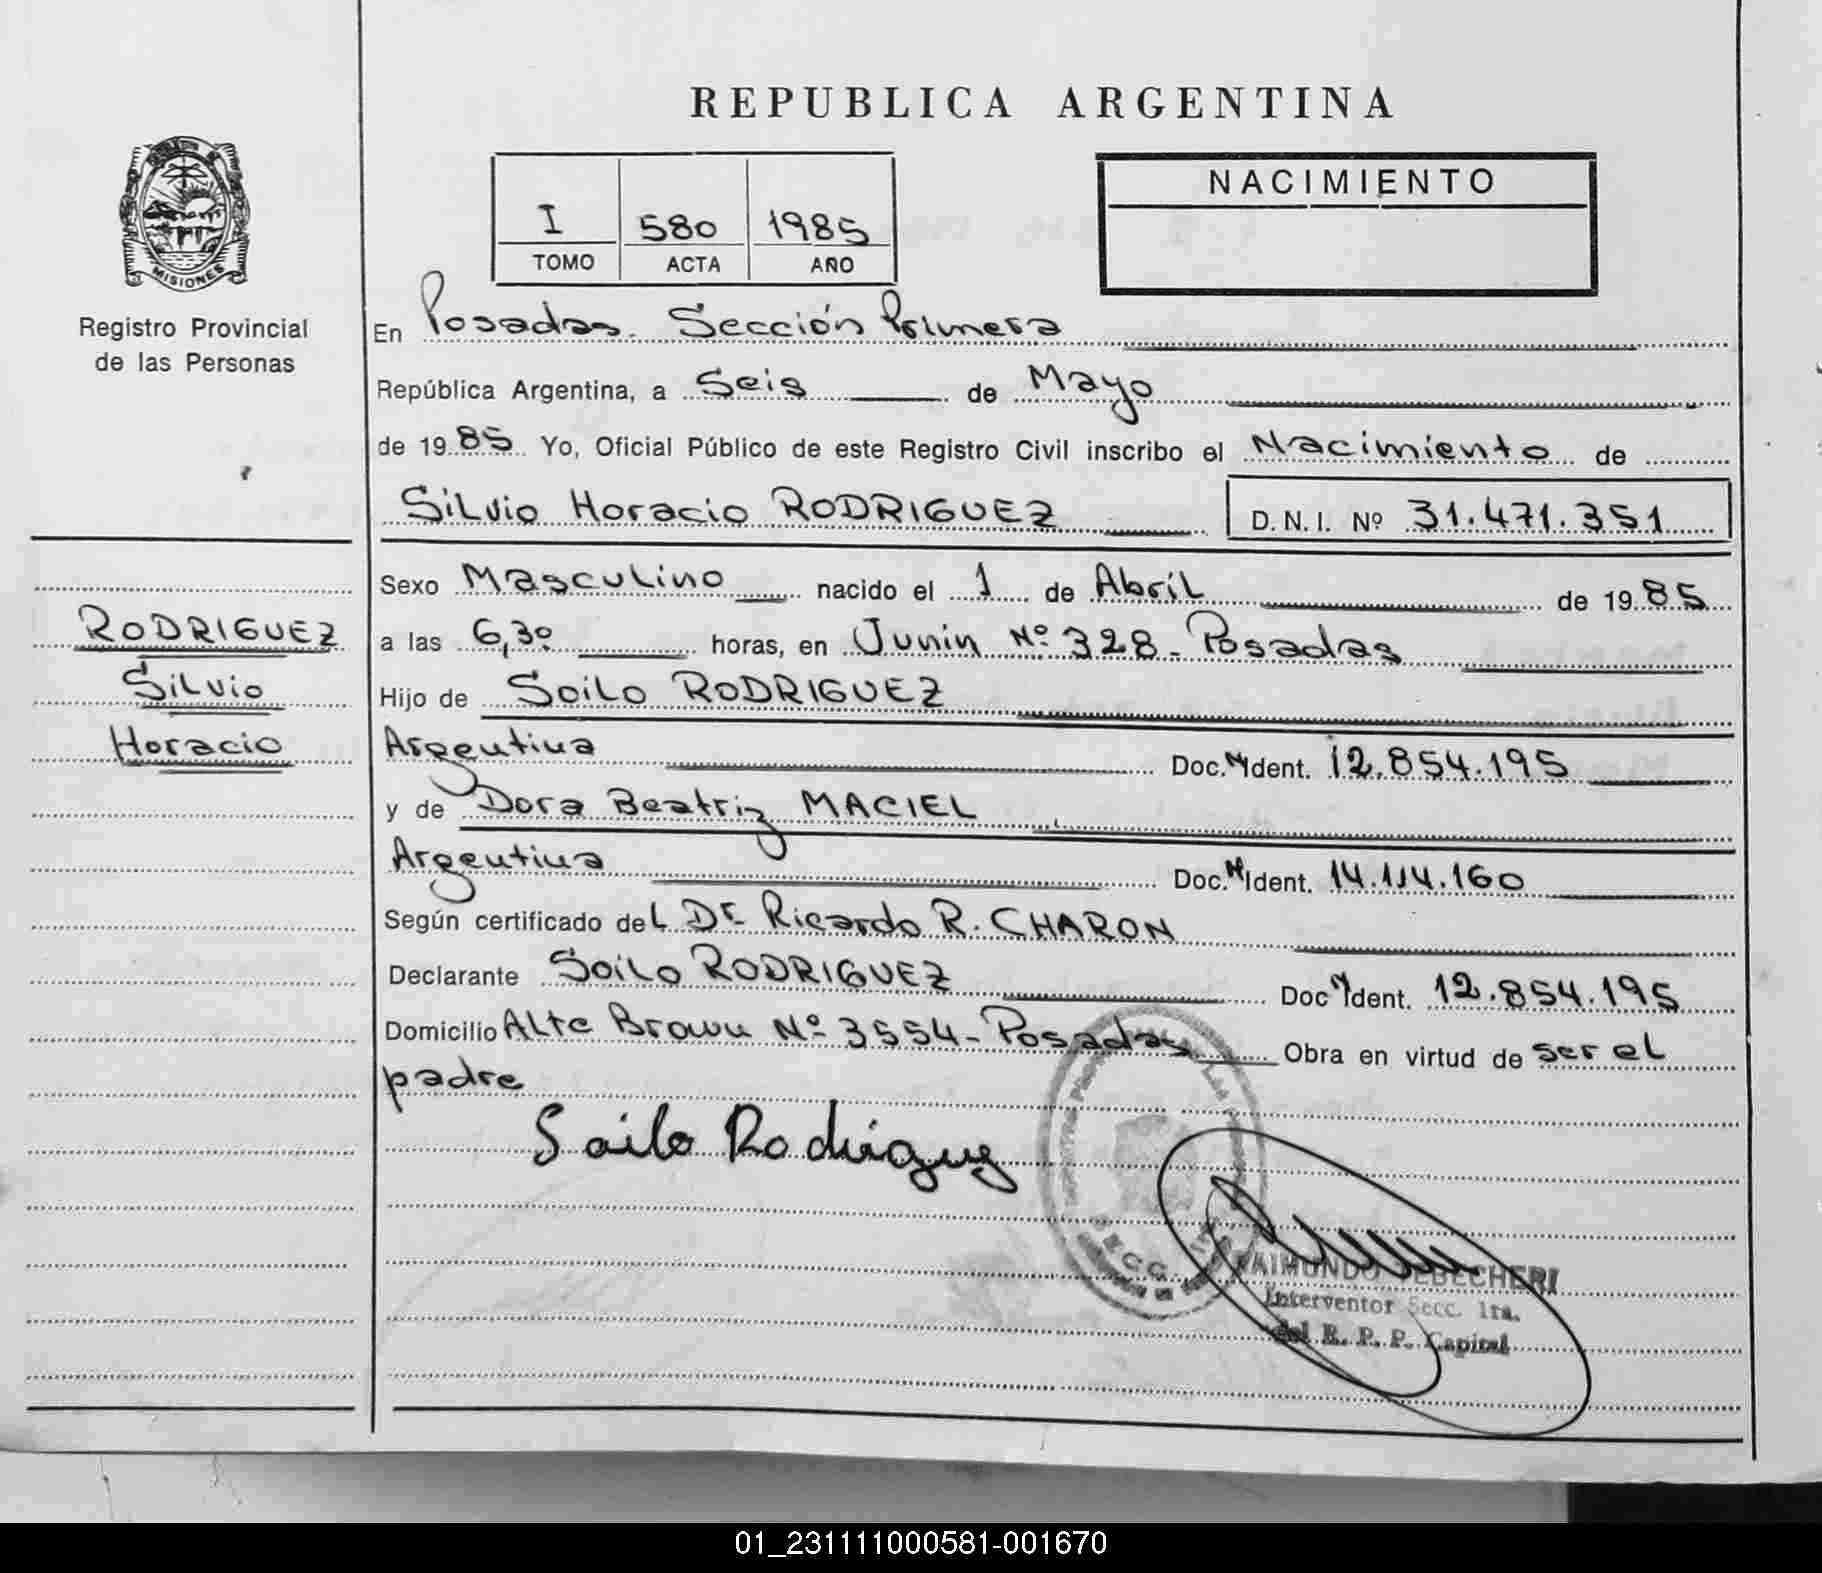 REPUBLICA ARGENTINA
NACIMIENTO
I 580 1985
TOMO ACTA AÑO
MISIONES
Registro Provincial
de las Personas
En Posadas. Sección Primera
República Argentina, a Seis de Mayo
de 1985 Yo, Oficial Público de este Registro Civil inscribo el Nacimiento de
Silvio Horacio RODRIGUEZ D.N.I. Nº 31.471.351
RODRIGUEZ
Silvio
Horacio
Sexo Masculino nacido el 1 de Abril de 1985
a las 6,30 horas, en Junín Nº 328 - Posadas
Hijo de Soilo RODRIGUEZ
Argentina Doc. N Ident. 12.854.195
y de Dora Beatriz MACIEL
Argentina Doc. N Ident. 14.114.160
Según certificado del Dr Ricardo R. CHARON
Declarante Soilo RODRIGUEZ Doc N Ident. 12.854.195
Domicilio Alte Brown Nº 3554 - Posadas Obra en virtud de ser el
padre
Soilo Rodriguez
RAIMUNDO
Interventor Secc. 1ra.
del R. P. P. Capital
01_231111000581-001670